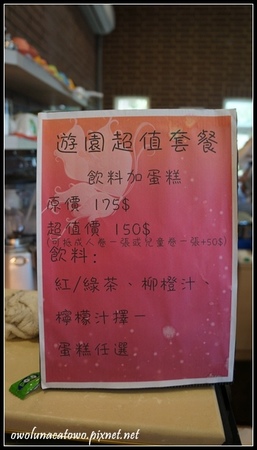 遊園超值套餐
飲料加蛋糕
原價 175$
超值價 150$
(可抵成人卷一張或兒童卷一張+50$)
飲料:
紅/綠茶、柳橙汁、
檸檬汁擇一
蛋糕任選
owolunacatowo.pixnet.net